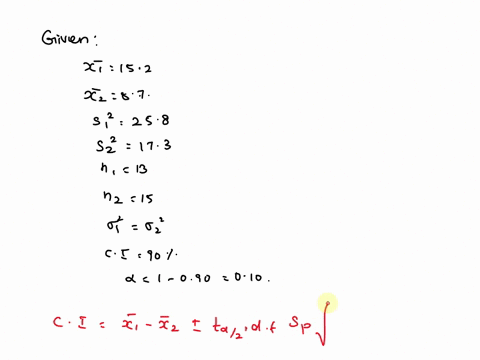 Given:
x̄₁ = 15.2
x̄₂ = 8.7.
s₁² = 25.8
s₂² = 17.3
n₁ = 13
n₂ = 15
σ₁² = σ₂²
C.I = 90%.
α = 1 - 0.90 = 0.10.
C.I = x̄₁ - x̄₂ ± t_{α/2, d.f} Sp √